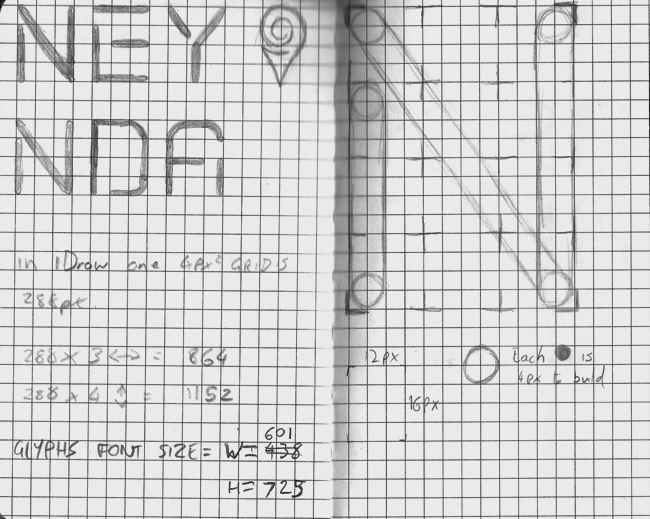 NEY
NDA
in iDraw one 4px² GRID is
288pt
288 x 3 ↔ = 864
288 x 4 ↕ = 1152
GLYPHS FONT SIZE = W = 438
601
H = 725
12px
16px
Each ● is
4px to build